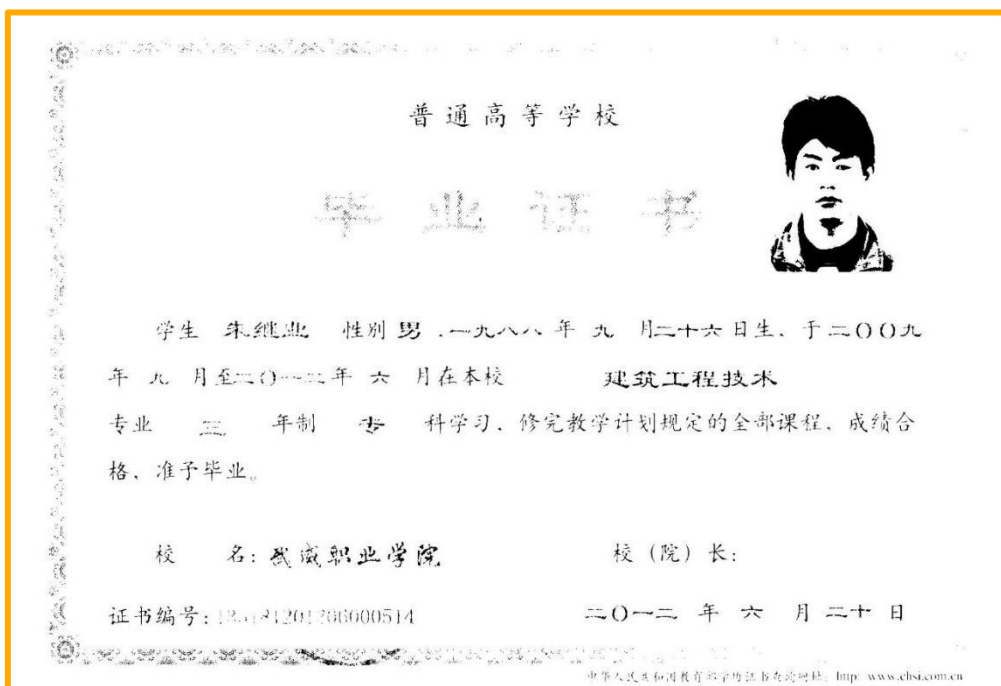 普通高等学校
毕业证书
学生 朱继业 性别 男 、一九八八 年 九 月二十六日生、于二〇〇九
年 九 月至二〇一二年 六 月在本校 建筑工程技术
专业 三 年制 专 科学习、修完教学计划规定的全部课程、成绩合
格、准予毕业。
校 名: 武威职业学院
校（院）长:
证书编号:
二〇一二 年 六 月 二十 日
中华人民共和国教育部学历证书查询网址: http: www.chsi.com.cn